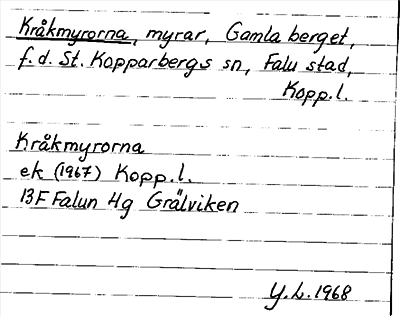 Kråkmyrorna, myrar, Gamla berget,
f.d. St. Kopparbergs sn, Falu stad,
Kopp.l.
Kråkmyrorna
ek (1967) Kopp.l.
13F Falun 4g Grälviken
Y.L. 1968